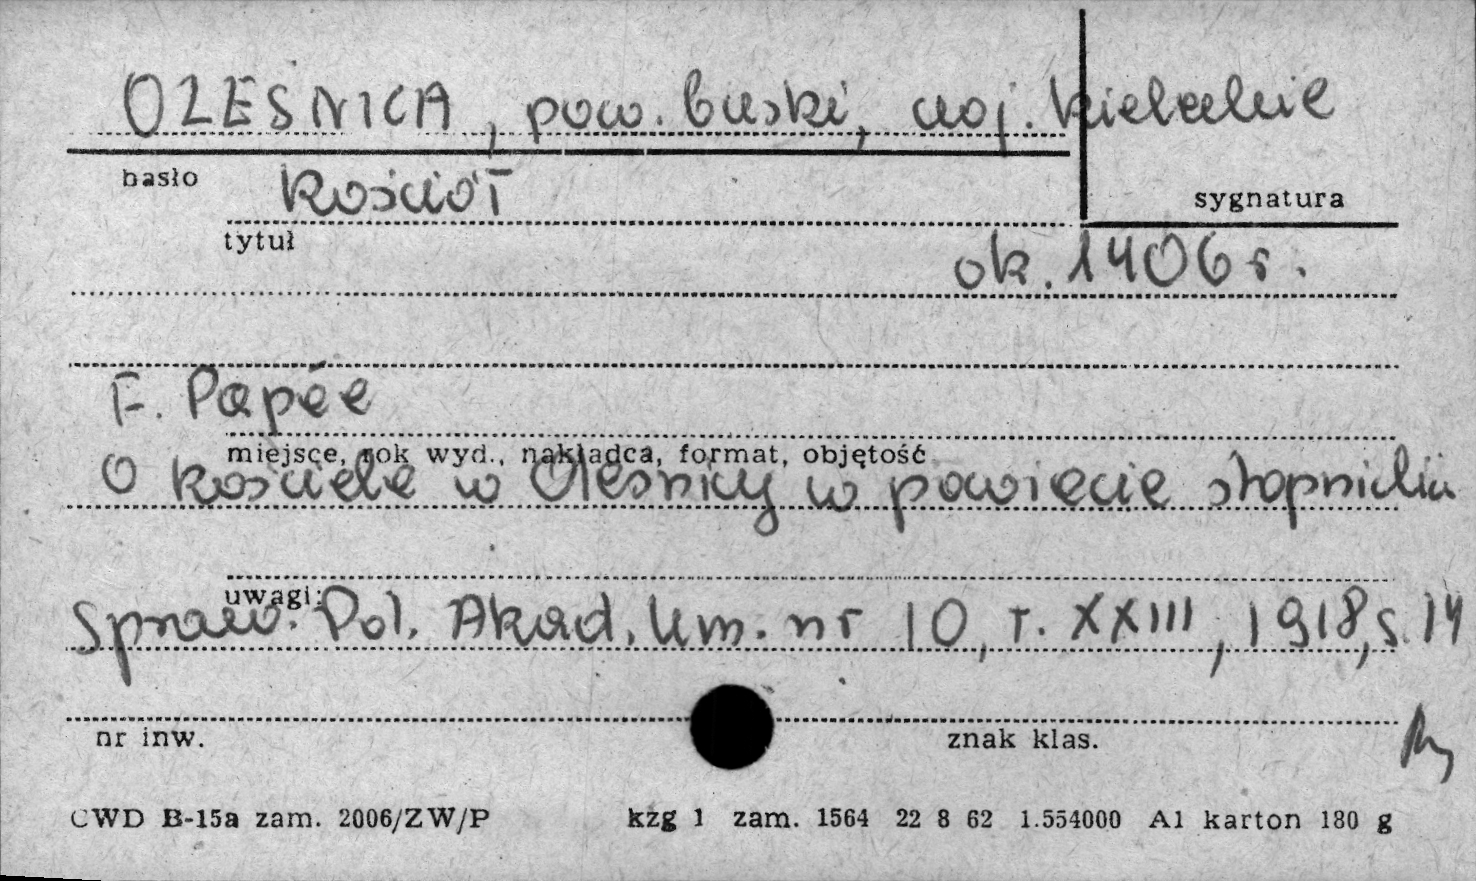 OLESNICA, pow. buski, woj. kieleckie
hasło
sygnatura
Kościół
tytuł
ok. 1406 r.
F. Papée
miejsce, rok wyd., nakładca, format, objętość
O kościele w Oleśnicy w powiecie stopnickim
uwagi:
Spraw. Pol. Akad. Um. nr 10, T. XXIII, 1918, s. 14
nr inw.
znak klas.
CWD B-15a zam. 2006/ZW/P kzg 1 zam. 1564 22 8 62 1.554000 A1 karton 180 g